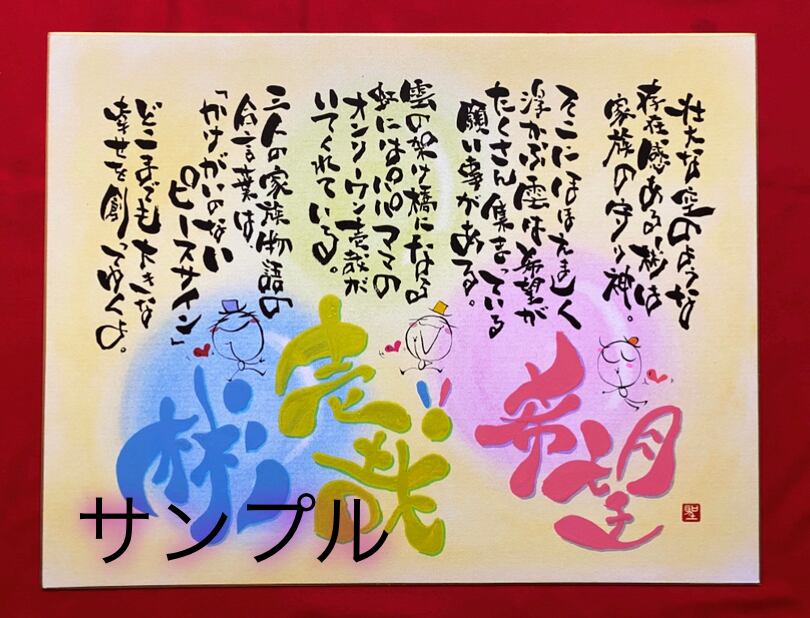 壮大な空のような
存在感ある彬は
家族の守り神。
そこにほほえましく
浮かぶ雲は希望が
たくさん集まっている
願い事がある。
雲の架け橋になる
虹にはパパママの
オンリーワン壱哉が
いてくれている。
三人の家族物語の
合言葉は
「かけがいのない
ピースサイン」
どこまでも大きな
幸せを創ってゆくよ。
希望
壱哉
彬
サンプル